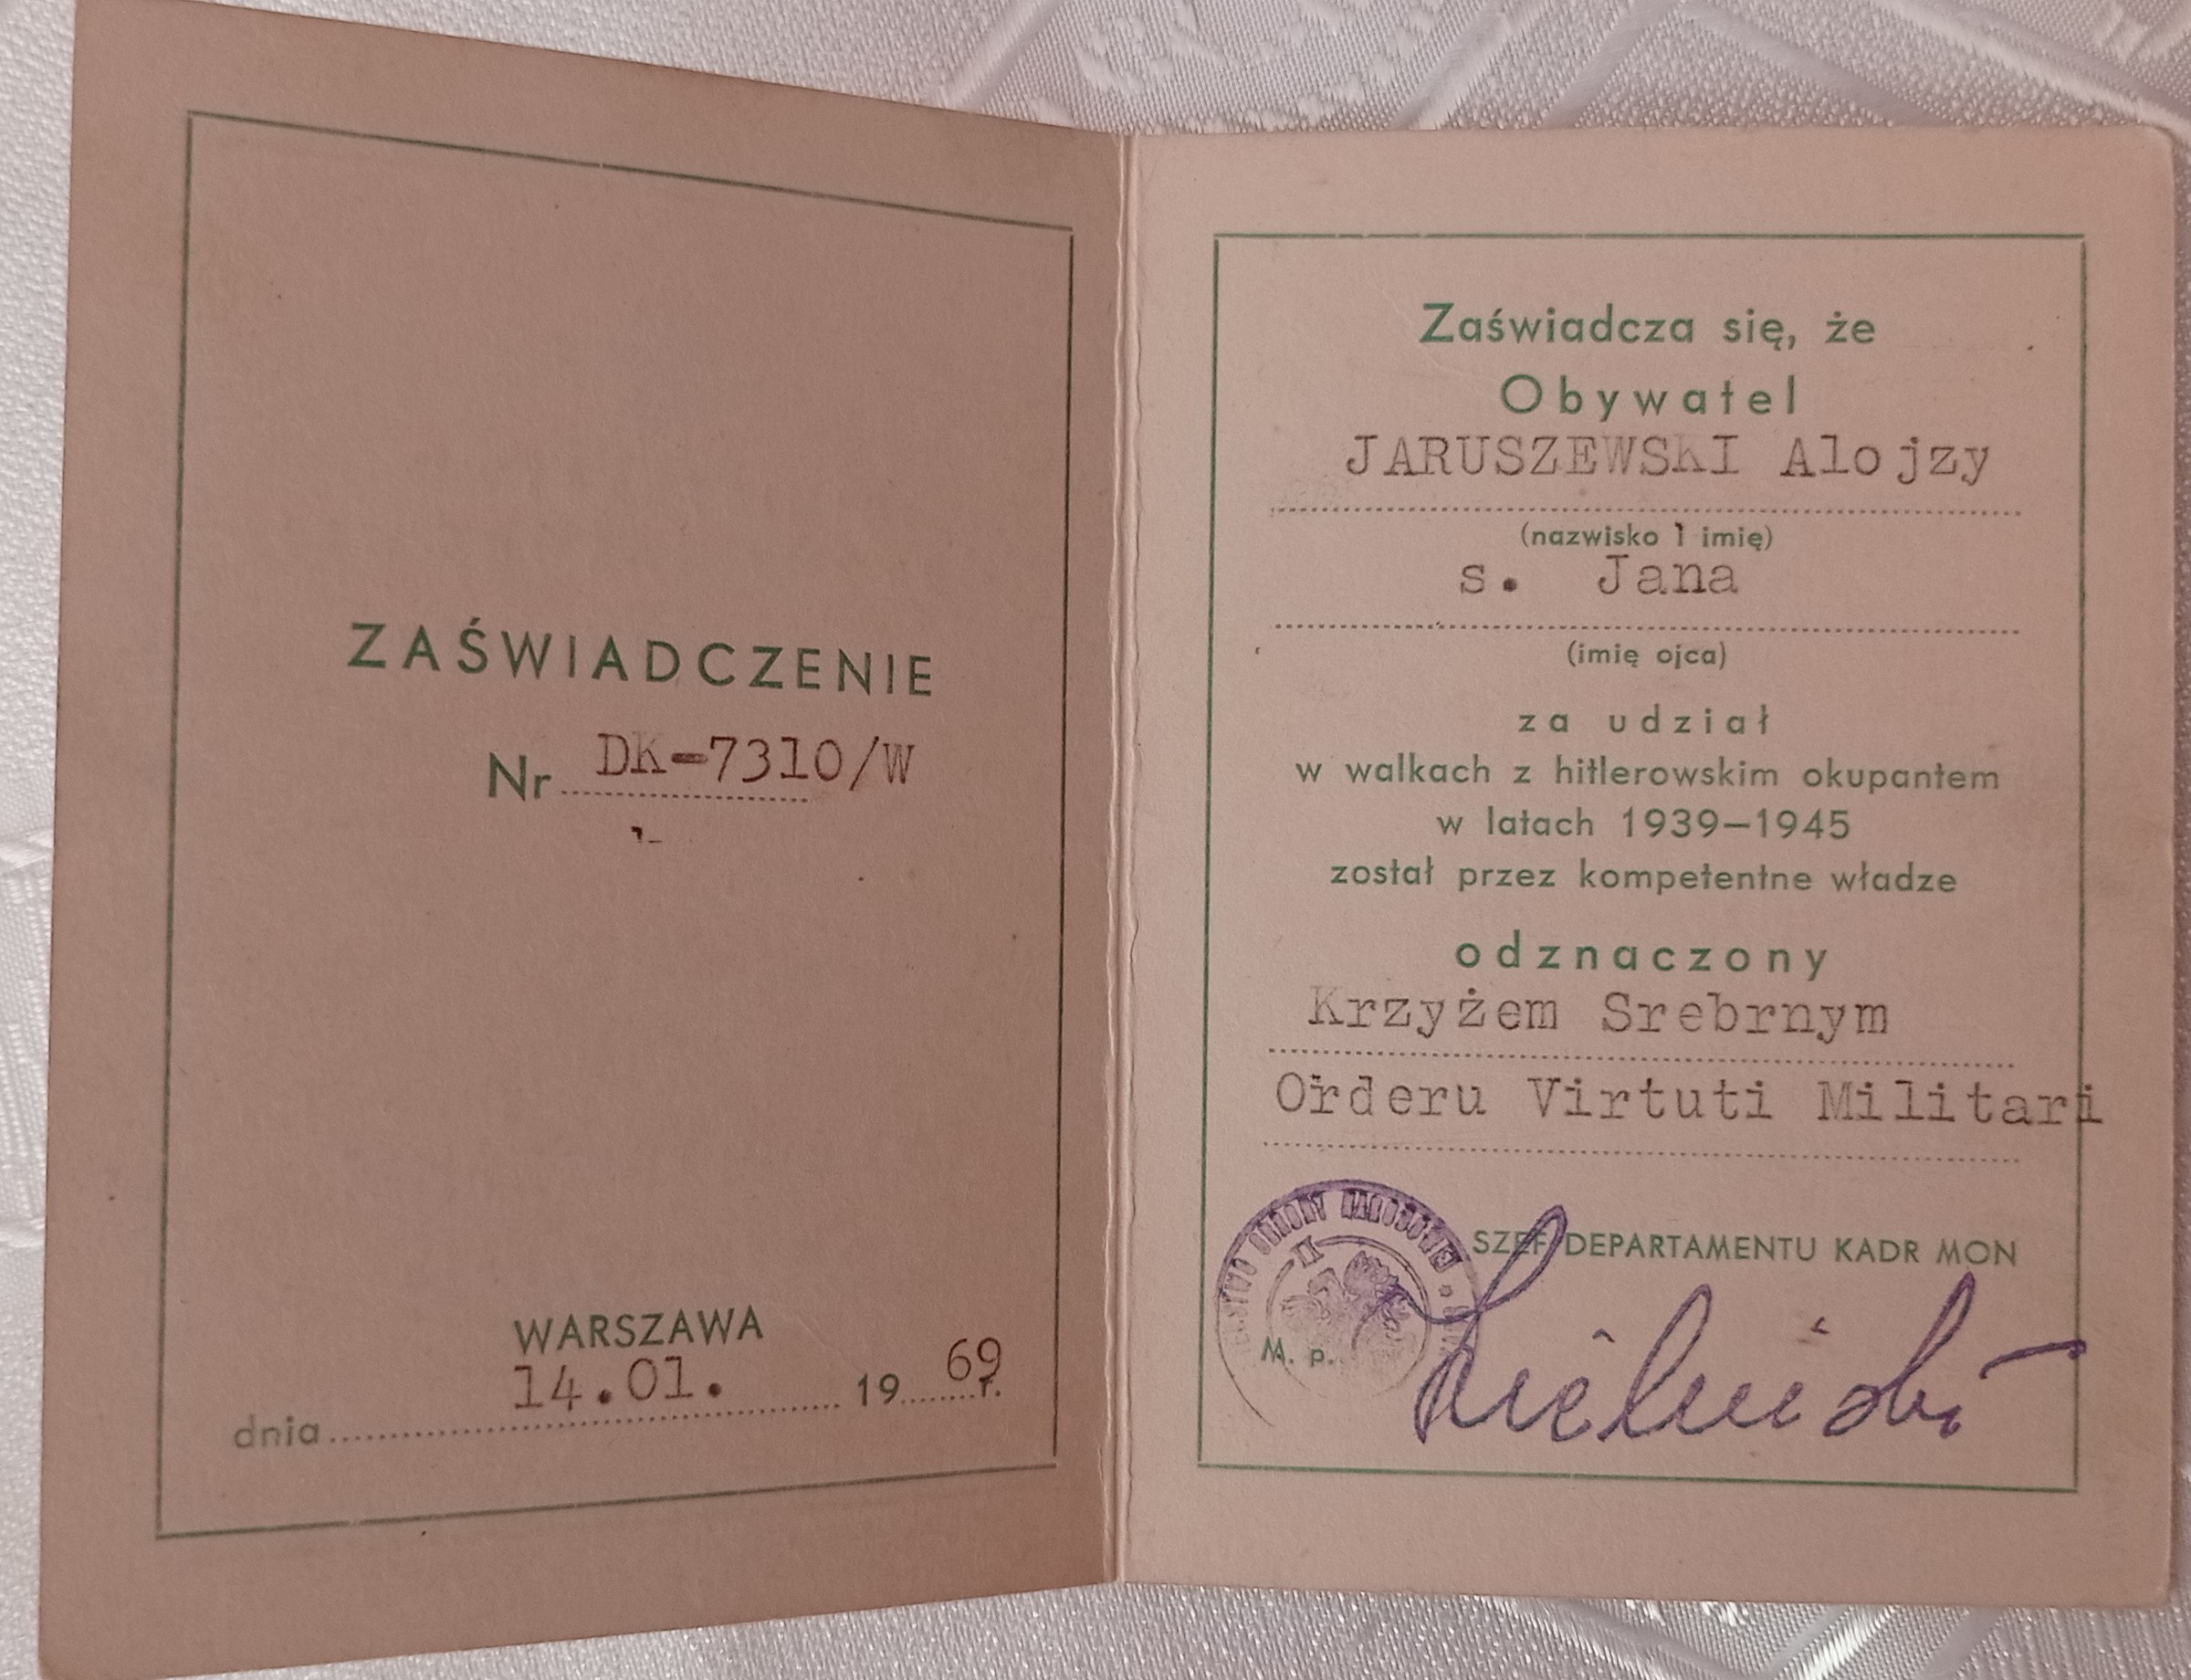 ZAŚWIADCZENIE
Nr DK-7310/W
WARSZAWA
dnia 14.01. 1969 r.
Zaświadcza się, że
Obywatel
JARUSZEWSKI Alojzy
(nazwisko i imię)
s. Jana
(imię ojca)
za udział
w walkach z hitlerowskim okupantem
w latach 1939–1945
został przez kompetentne władze
odznaczony
Krzyżem Srebrnym
Orderu Virtuti Militari
SZEF DEPARTAMENTU KADR MON
OBRONY NARODOWEJ
M. p.